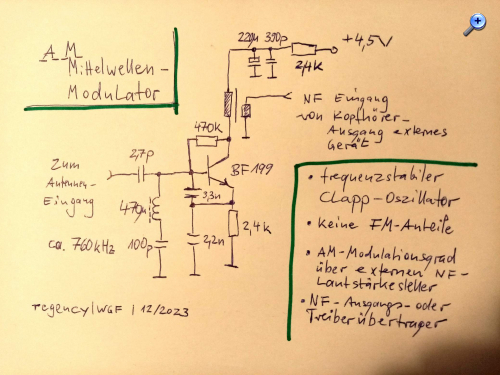 AM
Mittelwellen-
Modulator
220µ 330p
+4,5V
2,4K
NF Eingang
von Kopfhörer-
Ausgang externes
Gerät
470K
BF199
2,7p
Zum
Antennen-
Eingang
3,3n
470µ
ca. 760kHz
100p
2,2n
2,4K
• frequenzstabiler
Clapp-Oszillator
• Keine FM-Anteile
• AM-Modulationsgrad
über externen NF-
Lautstärkesteller
• NF-Ausgangs- oder
Treiberübertrager
regency/WGF | 12/2023